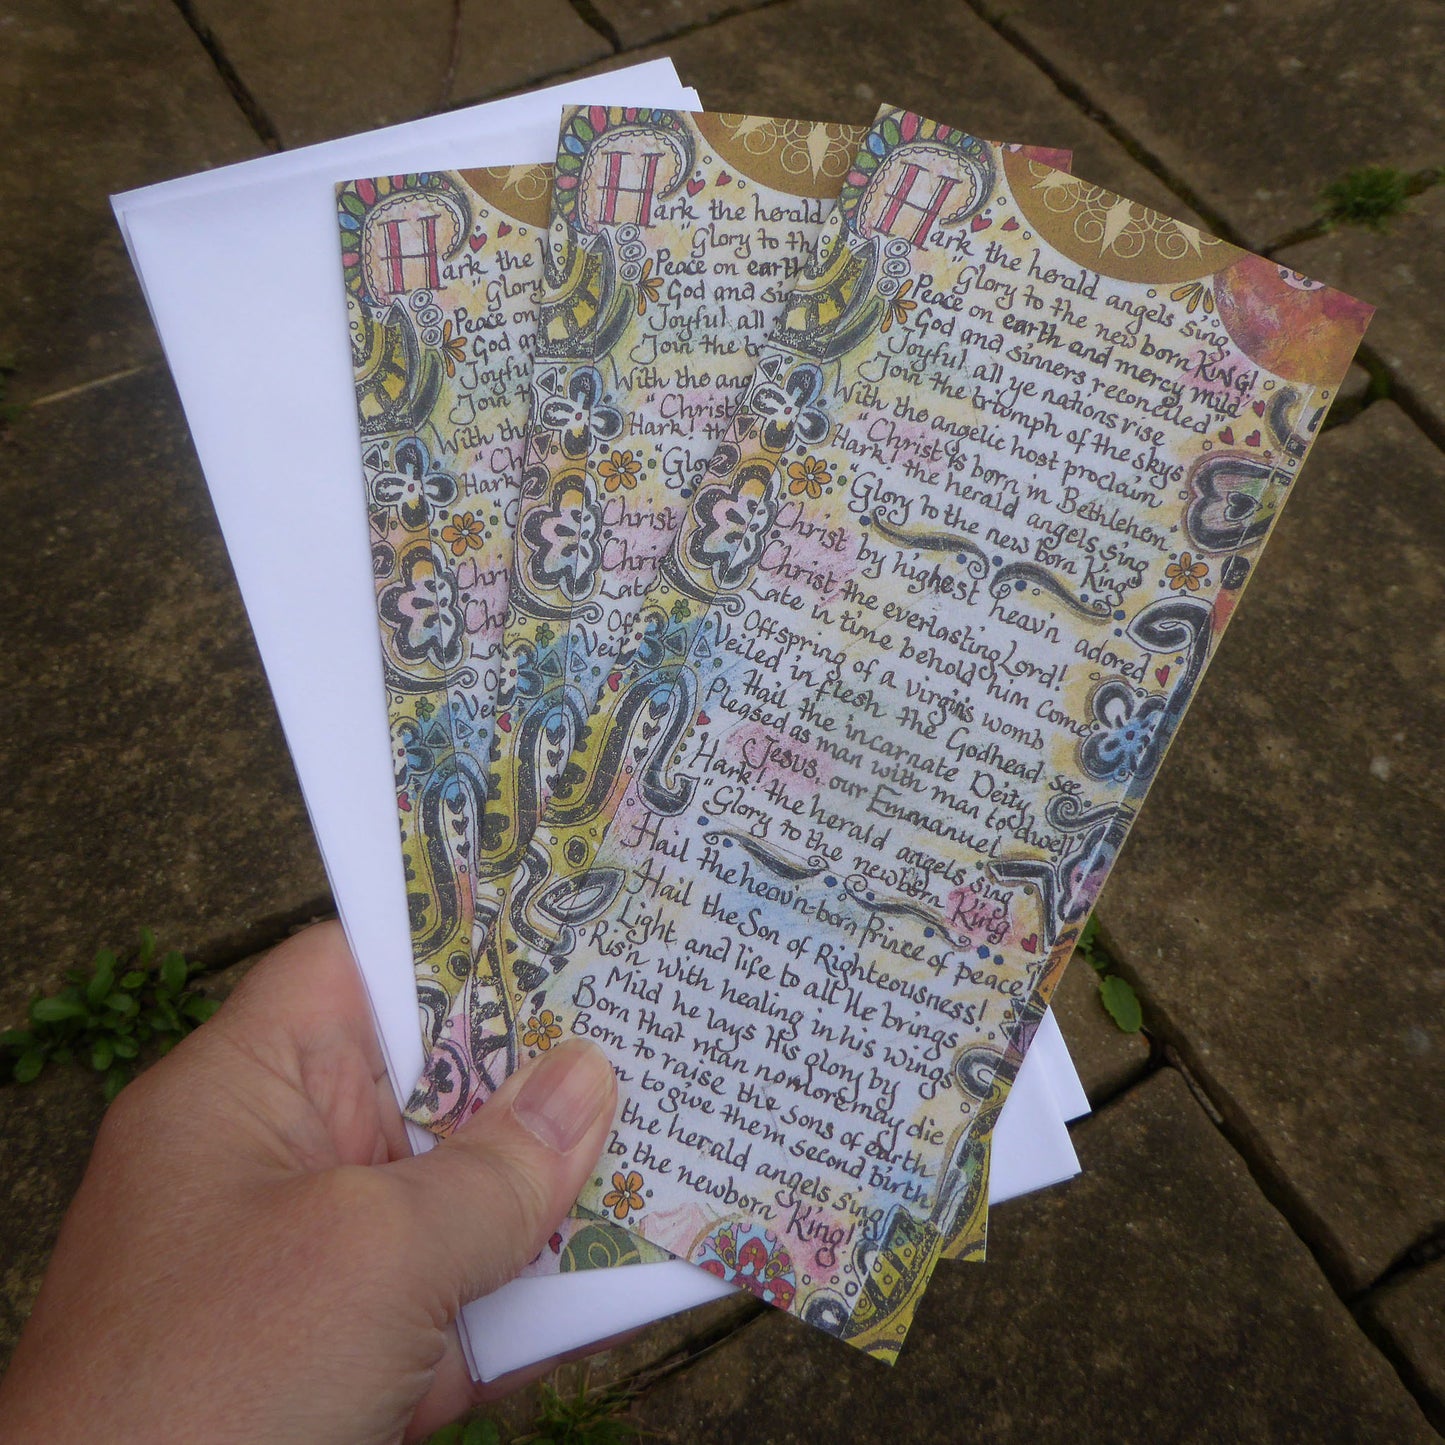 Hark the
"Glory
Peace on
God an
Joyful
Join t
With th
"Ch
Hark
Chri
Ch
La
O
Vei
Hark the herald
"Glory to th
Peace on earth
God and si
Joyful all
Join the tr
With the ang
"Christ
Hark! th
"Glo
Christ
Chri
Late
Of
Veil
Hark the herald angels sing,
"Glory to the new born KING!
Peace on earth and mercy mild
God and sinners reconciled"
Joyful all ye nations rise
Join the triumph of the skys
With the angelic host proclaim
"Christ is born in Bethlehem
Hark! the herald angels sing
"Glory to the new born King"
Christ by highest heav'n adored
Christ the everlasting Lord!
Late in time behold him come
Offspring of a virgin's womb
Veiled in flesh the Godhead see
Hail the incarnate Deity
Pleased as man with man to dwell
Jesus, our Emmanuel
Hark! the herald angels sing
"Glory to the newborn King
Hail the heav'n-born Prince of peace
Hail the Son of Righteousness!
Light and life to all He brings
Ris'n with healing in his wings
Mild he lays His glory by
Born that man no more may die
Born to raise the sons of earth
n to give them second birth
the herald angels sing
to the newborn King!"